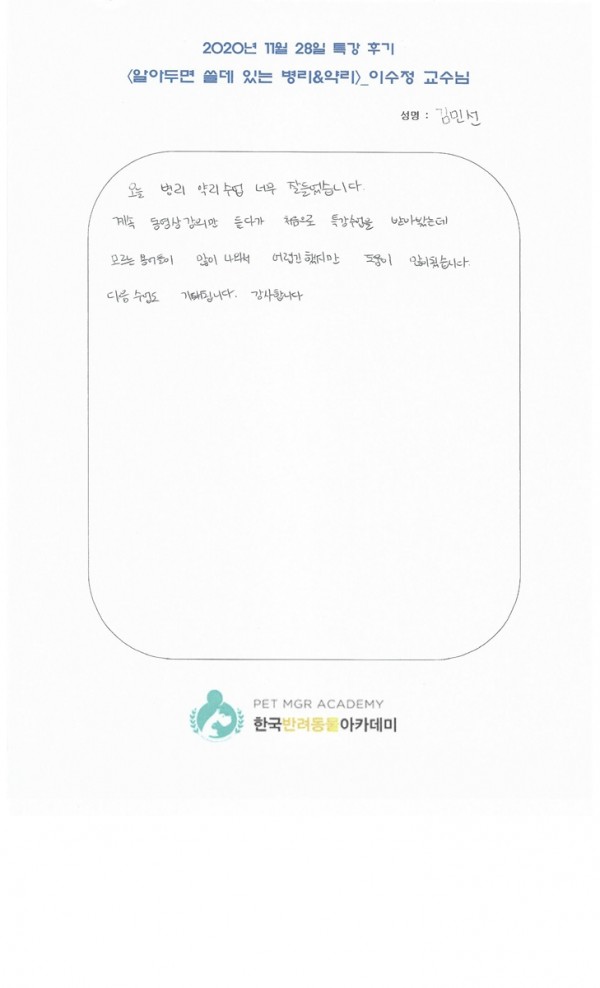 2020년 11월 28일 특강 후기
<알아두면 쓸데 있는 병리&약리>_이수정 교수님
성명 : 김민선
오늘 병리 약리수업 너무 잘들었습니다.
계속 동영상강의만 듣다가 처음으로 특강수업을 받아봤는데
모르는 용어들이 많이 나와서 어렵긴했지만 도움이 많이되었습니다.
다음수업도 기대됩니다. 감사합니다
PET MGR ACADEMY
한국반려동물아카데미